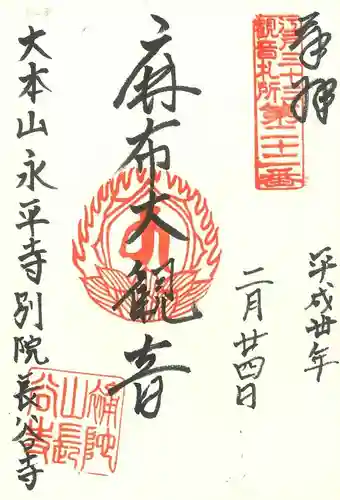 奉拝
江戸三十三
観音札所
第二十二番
平成丗年
二月廿四日
麻布大観音
大本山永平寺別院長谷寺
補陀
山長
谷寺